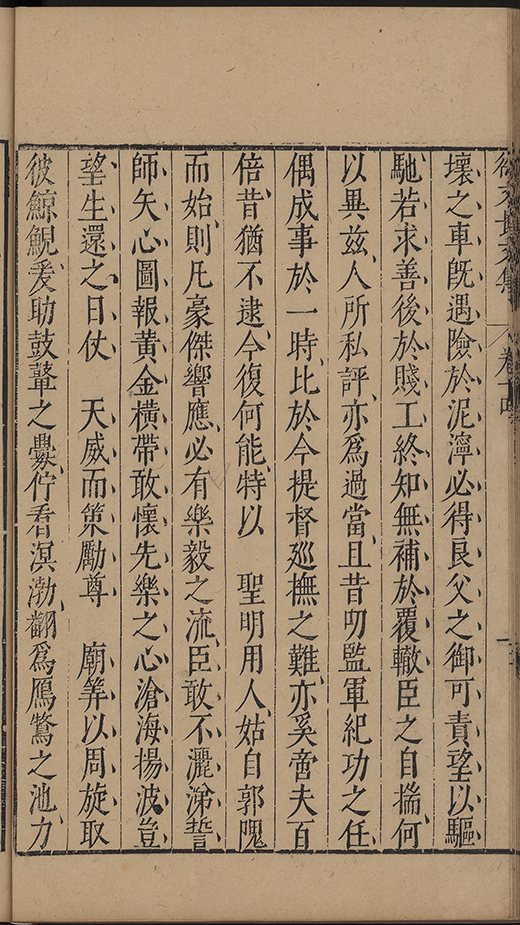 徐文長文集 卷十四 二
壞之車旣遇險於泥濘必得良父之御可責望以驅
馳若求善後於賤工終知無補於覆轍臣之自揣何
以異兹人所私評亦爲過當且昔叨監軍紀功之任
偶成事於一時比於今提督廵撫之難亦奚啻夫百
倍昔猶不逮今復何能特以 聖明用人姑自郭隗
而始則凡豪傑響應必有樂毅之流臣敢不灑涕誓
師矢心圖報黄金橫帶敢懷先樂之心滄海揚波豈
望生還之日仗 天威而策勵尊 廟筭以周旋取
彼鯨鯢爰助鼓鼙之釁佇看溟渤翻爲鴈鶩之池力